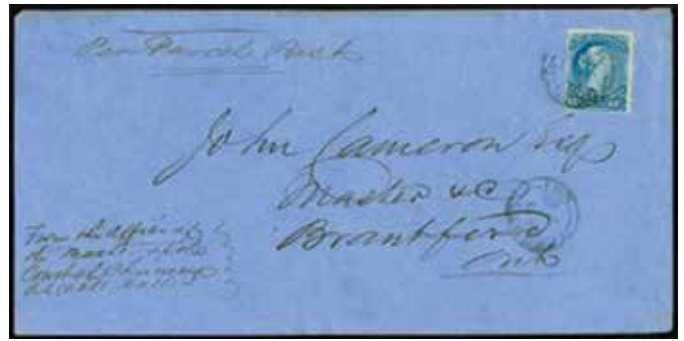 Per Parcel Post
John Cameron Esq
Master &c
Brantford
Ont
From the Office of
the Master of the
Court of Chancery